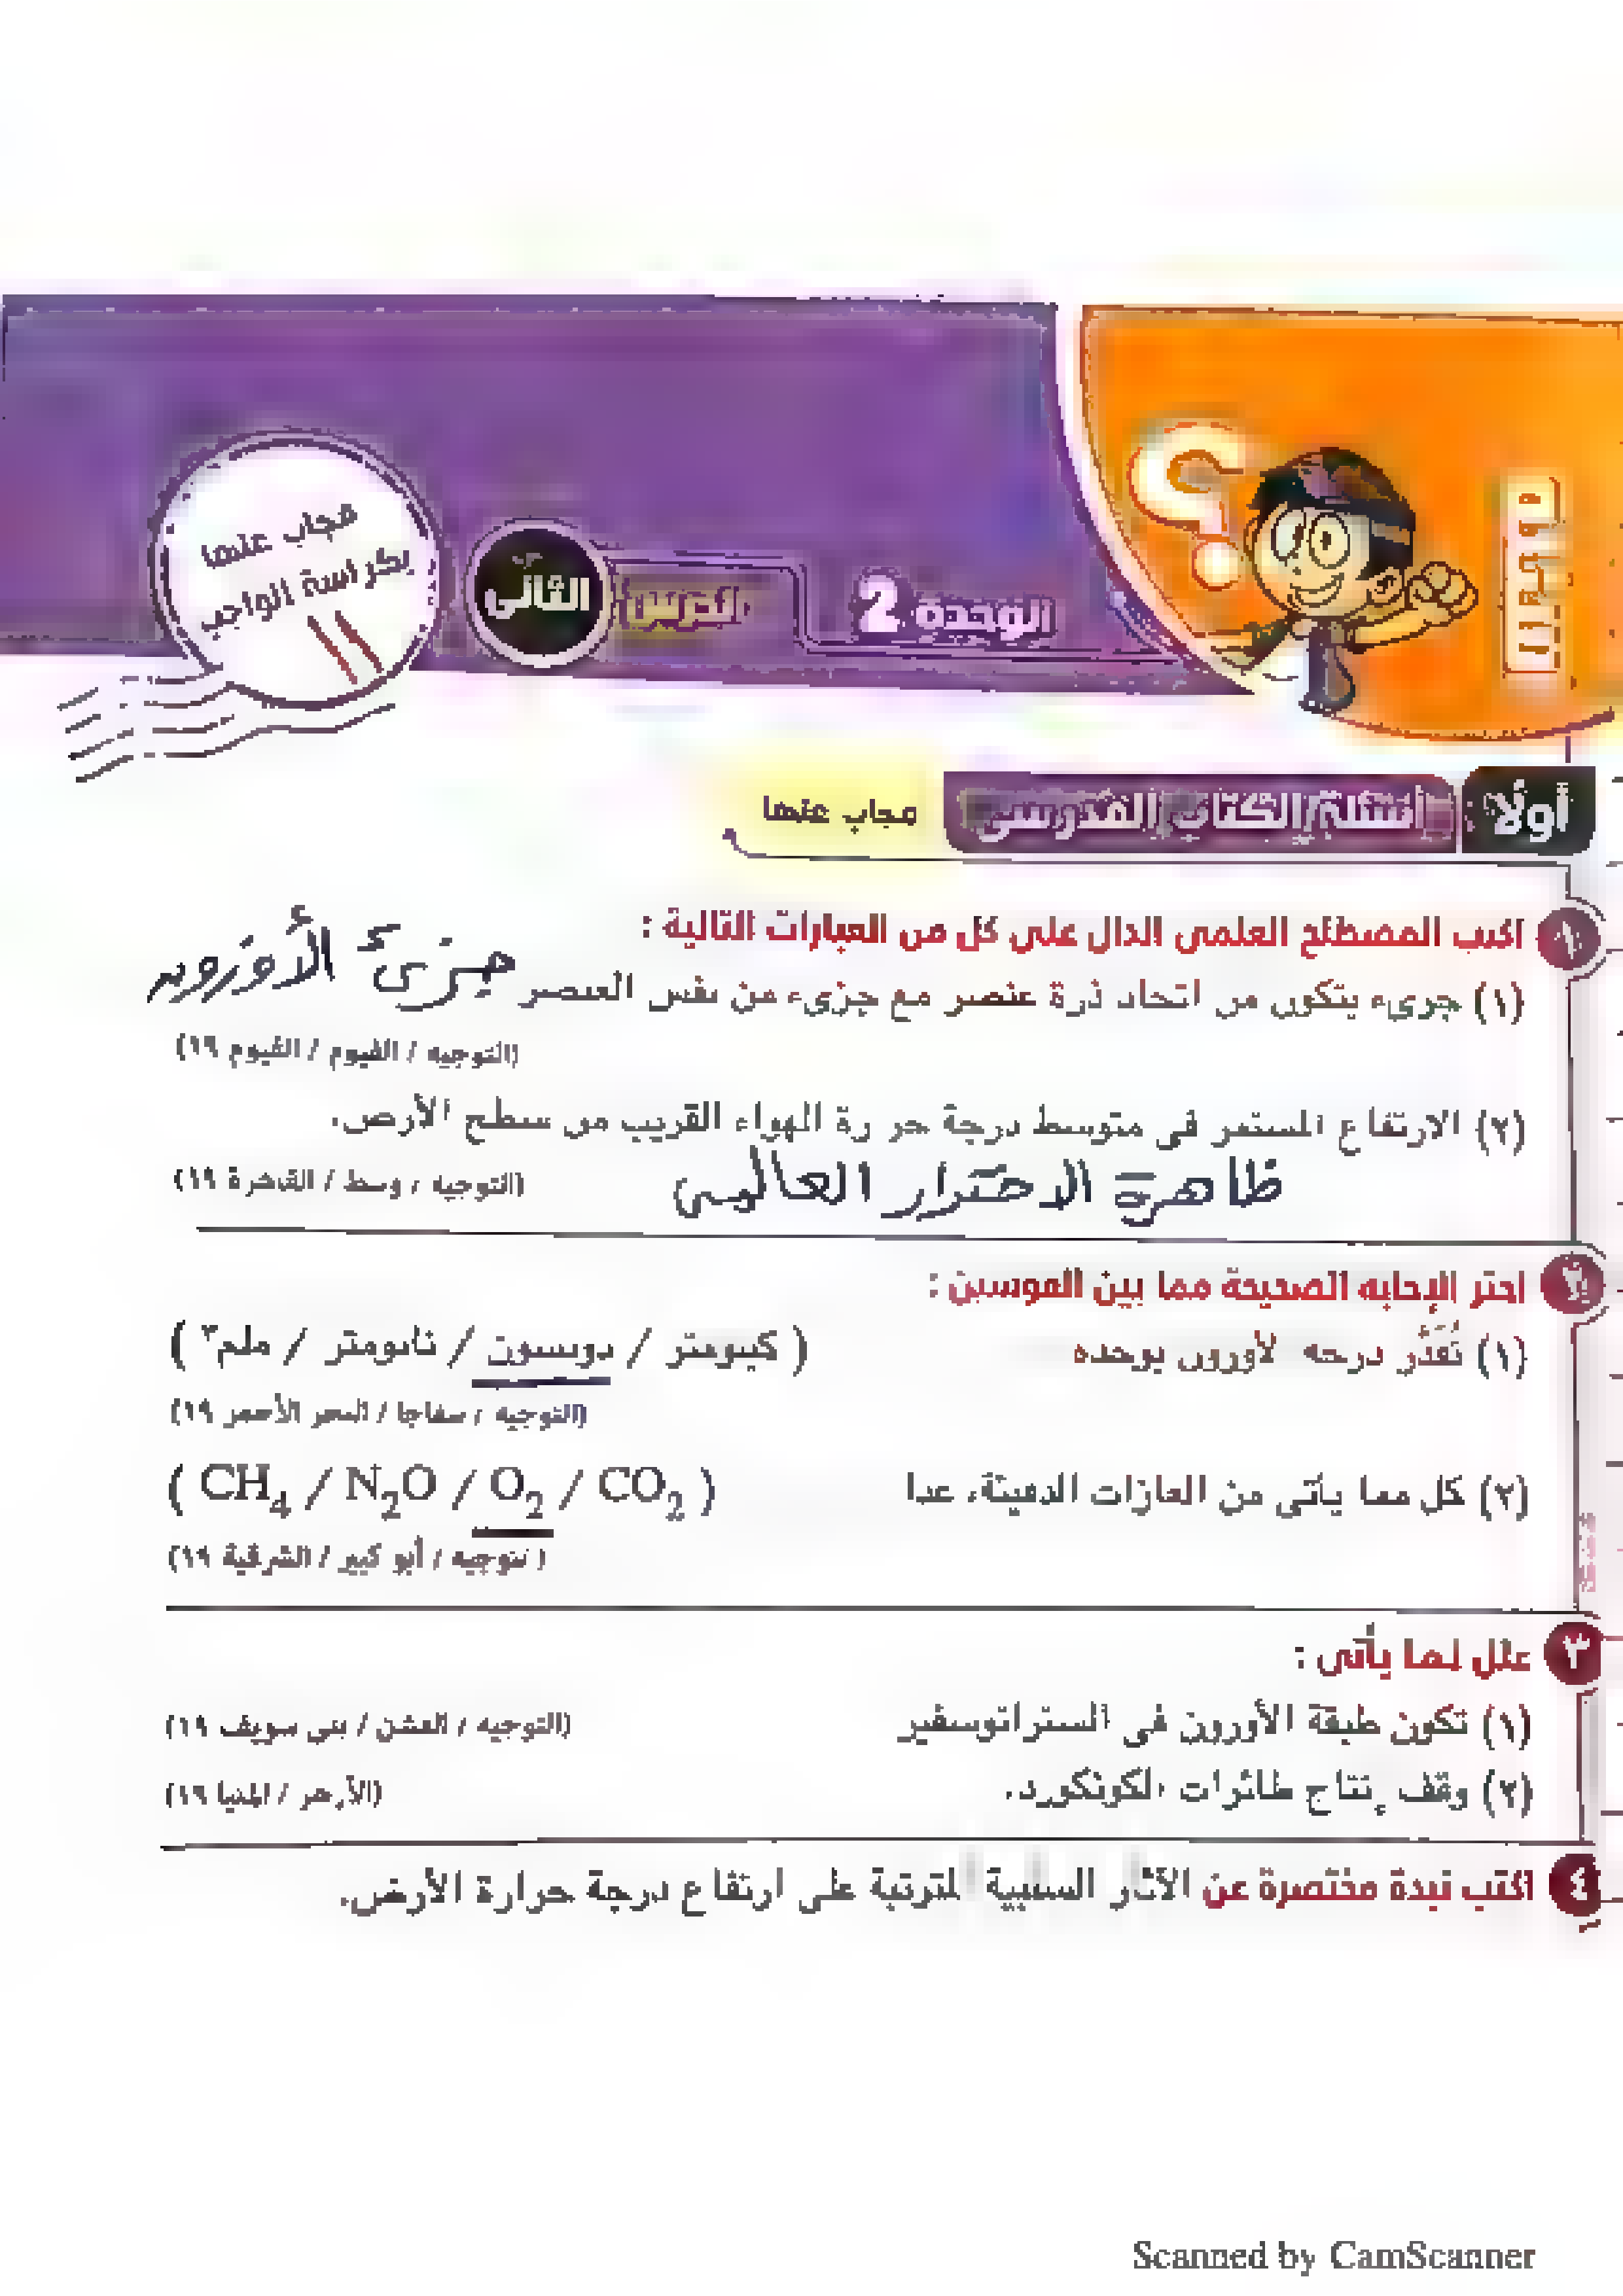 الوحدة 2
الدرس الثانى
مجاب عنها
بكراسة الواجب
أولًا
أسئلة الكتاب المدرسى
مجاب عنها
١ اكتب المصطلح العلمى الدال على كل من العبارات التالية :
(١) جزىء يتكون من اتحاد ذرة عنصر مع جزىء من نفس العنصر جزىء الأوزون
(التوجيه / الفيوم / الفيوم ١٩)
(٢) الارتفاع المستمر فى متوسط درجة حرارة الهواء القريب من سطح الأرض.
ظاهرة الاحترار العالمى
(التوجيه / وسط / القاهرة ١٩)
٢ اختر الإجابة الصحيحة مما بين القوسين :
(١) تُقَدَّر درجة الأوزون بوحدة ( كيلومتر / دوبسون / نانومتر / ملم٣ )
(التوجيه / سفاجا / البحر الأحمر ١٩)
(٢) كل مما يأتى من الغازات الدفيئة، عدا ( CH4 / N2O / O2 / CO2 )
(التوجيه / أبو كبير / الشرقية ١٩)
٣ علل لما يأتى :
(١) تكون طبقة الأوزون فى الستراتوسفير (التوجيه / الفشن / بنى سويف ١٩)
(٢) وقف إنتاج طائرات الكونكورد. (الأزهر / المنيا ١٦)
٤ اكتب نبذة مختصرة عن الآثار السلبية المترتبة على ارتفاع درجة حرارة الأرض.
Scanned by CamScanner